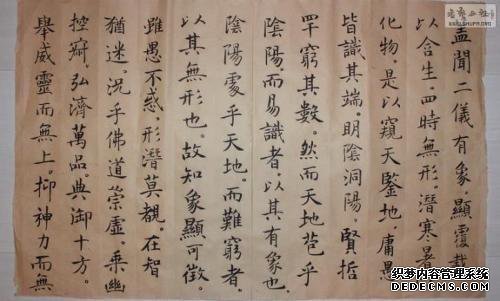 盖聞二儀有象。顯覆載
以含生。四時無形。潛寒暑
化物。是以窺天鑒地。庸愚
皆識其端。明陰洞陽。賢哲
罕窮其數。然而天地苞乎
陰陽。而易識者。以其有象也。
陰陽處乎天地。而難窮者。
以其無形也。故知象顯可徵。
雖愚不惑。形潛莫覩。在智
猶迷。況乎佛道崇虛。乘幽
控寂。弘濟萬品。典御十方。
舉威靈而無上。抑神力而無
织梦内容管理系统
DEDECMS.COM